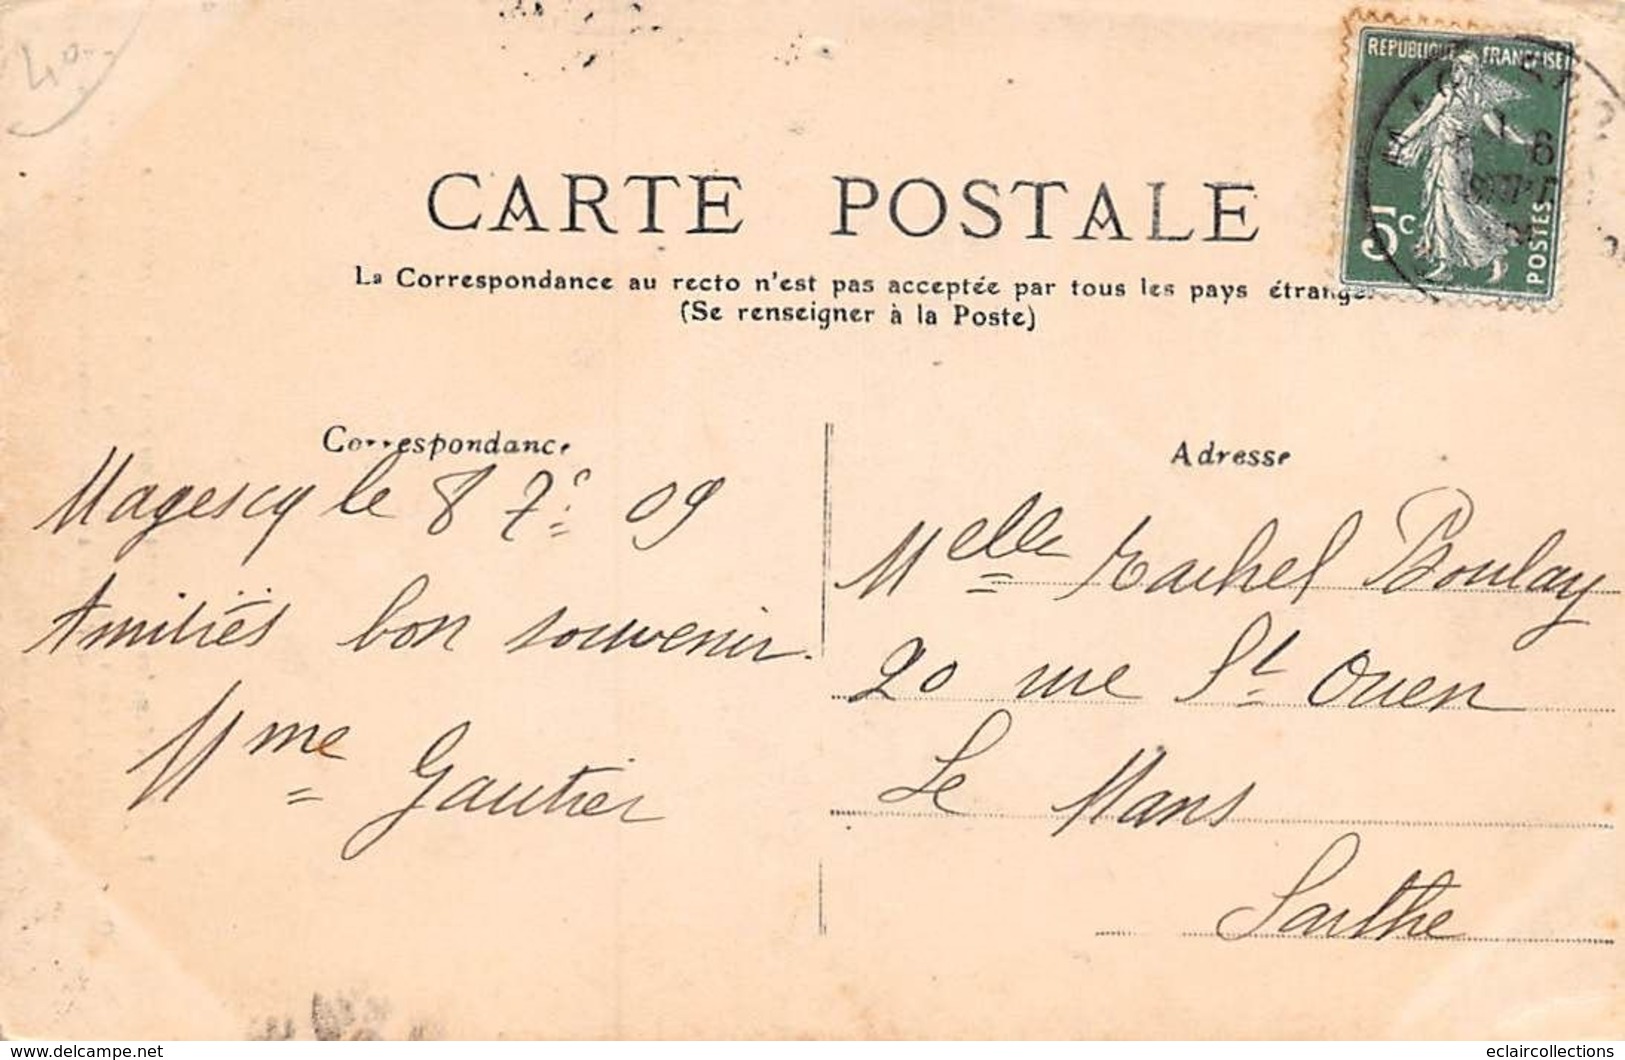 40
CARTE POSTALE
La Correspondance au recto n'est pas acceptée par tous les pays étrange
(Se renseigner à la Poste)
REPUBLIQUE FRANÇAISE
5c
POSTES
Correspondance
Magescq le 8 7e 09
Amitiés bon souvenir.
Mme Gautier
Adresse
Melle Rachel Boulay
20 rue St Ouen
Le Mans
Sarthe
www.delcampe.net
eclaircollections